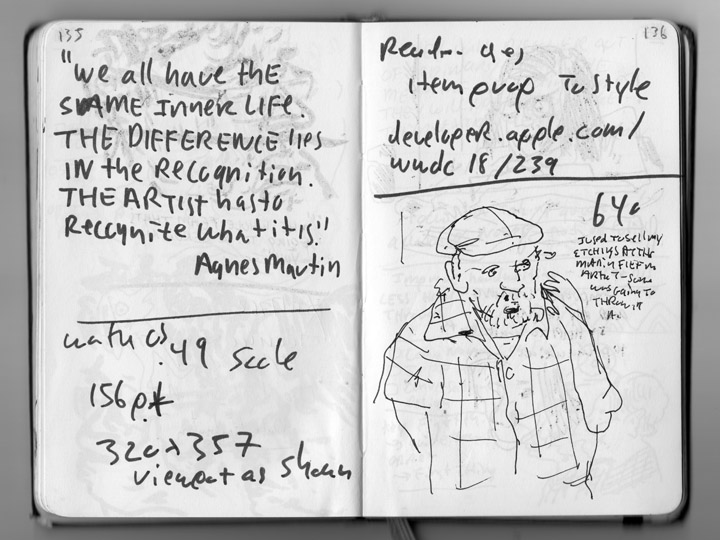 135
"We all have the
SAME INNER LIFE.
THE DIFFERENCE lies
IN the Recognition.
THE ARTist has to
Recognize what it is."
Agnes Martin
.49 Scale
156px
320x357
viewport as shown
136
item prop To Style
developer.apple.com/
wwdc18/239
I used To sell my
ETCHINGS AT THE
was going TO
THROW IT